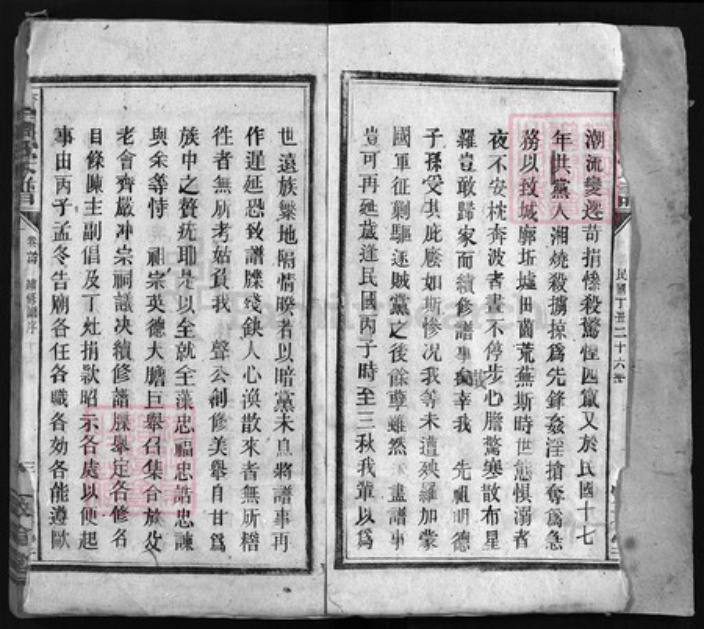 潮流變遷苛捐慘殺驚惶四竄又於民國十七
年共黨入湘燒殺擄掠為先鋒姦淫搶奪為急
務以致城廓坵墟田園荒蕪斯時世態惧溺者
夜不安枕奔波者晝不停步心膽驚寒散布星
羅豈敢歸家而續修譜事矣幸我 先祖明德
子孫受其庇廕如斯慘況我等未遭殃羅加蒙
國軍征剿驅逐賊黨之後餘孽雖然 盡譜事
豈可再延歲逢民國丙子時至三秋我輩以為
民國丁丑二十六年
世遠族繁地隔情睽者以暗黨未息將譜事再
作遲延恐致譜牒殘缺人心渙散來者無所稽
徃者無所考姑負我 聲公創修美舉自甘為
族中之贅疣耶是以全就全漢忠福忠誥忠諫
與余等恃 祖宗英德大膽巨舉召集合族父
老會齊嚴冲宗祠議决續修譜牒舉定各修名
目條陳主副倡及丁灶捐欵昭示各處以便起
事由丙子孟冬告廟各任各職各効各能遵歐
卷首 續修譜序